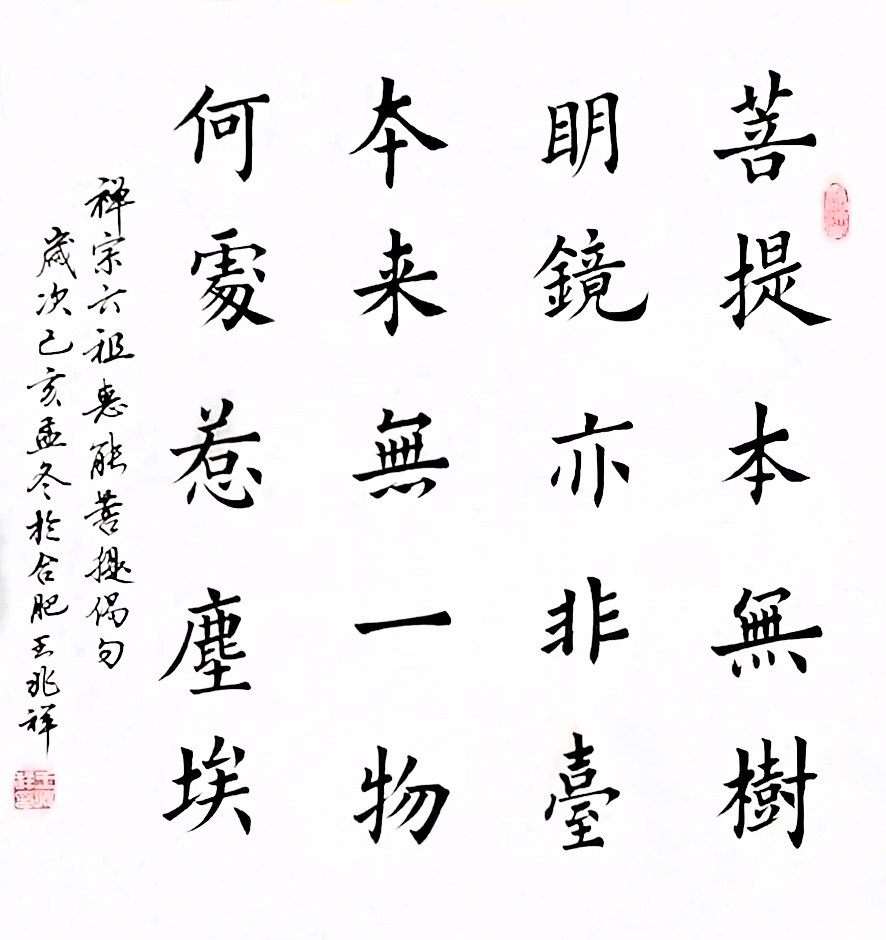 菩提本無樹
明鏡亦非臺
本来無一物
何處惹塵埃
禅宗六祖惠能菩提偈句
歲次己亥孟冬於合肥王兆祥